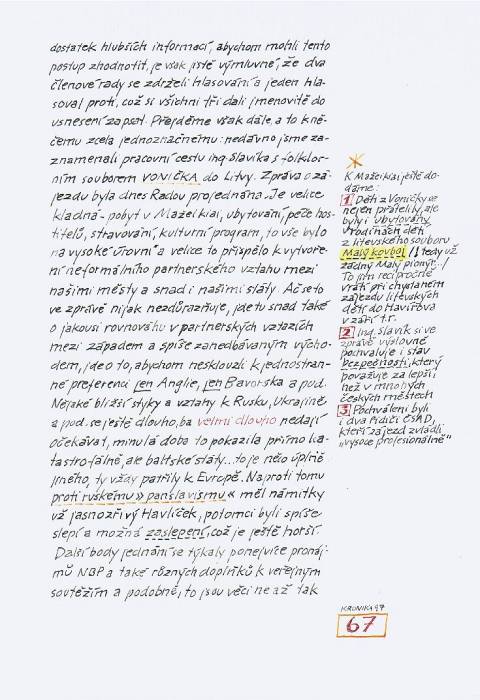 dostatek hlubších informací, abychom mohli tento
postup zhodnotit, je však jistě výmluvné, že dva
členové rady se zdrželi hlasování a jeden hla-
soval proti, což si všichni tři dali jmenovitě do
usnesení zapsat. Přejděme však dále, a to k ně-
čemu zcela jednoznačnému: nedávno jsme za-
znamenali pracovní cestu ing. Slavíka s folklor-
ním souborem VONIČKA do Litvy. Zpráva o zá-
jezdu byla dnes Radou projednána. Je velice
kladná - pobyt v Mažeikiai, ubytování, péče hos-
titelů, stravování, kulturní program, to vše bylo
na vysoké úrovni a velice to přispělo k vytvoře-
ní neformálního partnerského vztahu mezi
našimi městy a snad i našimi státy. Ač se to
ve zprávě nijak nezdůrazňuje, jde tu snad také
o jakousi rovnováhu v partnerských vztazích
mezi západem a spíše zanedbávaným výcho-
dem, jde o to, abychom nesklouzli k jednostran-
né preferenci jen Anglie, jen Bavorska a pod.
Nějaké bližší styky a vztahy k Rusku, Ukrajině
a pod. se ještě dlouho, ba velmi dlouho nedají
očekávat, minulá doba to pokazila přímo ka-
tastro-fálně, ale baltské státy... to je něco úplně
jiného, ty vždy patřily k Evropě. Naproti tomu
proti ruskému »panslavismu« měl námitky
už jasnozřivý Havlíček, potomci byli spíše
slepí a možná zaslepení, což je ještě horší.
Další body jednání se týkaly ponejvíce pronáj-
mů NBP a také různých doplňků k veřejným
soutěžím a podobně, to jsou věci ne až tak
K Mažeikiai ještě do-
dáme:
1 Děti z Voničky se
nejen přátelily, ale
byly i ubytovány
v rodinách dětí
z litevského souboru
Malý kovboj /!, tedy už
žádný Malý pionýr.../
To jim recipročně
vrátí při chystaném
zájezdu litevských
dětí do Havířova
v září t.r.
2 Ing. Slavík si ve
zprávě výslovně
pochvaluje i stav
bezpečnosti, který
považuje za lepší
než v mnohých
českých městech
3 Pochváleni byli
i dva řidiči ČSAD,
kteří zájezd zvládli
„vysoce profesionálně“
KRONIKA 97
67